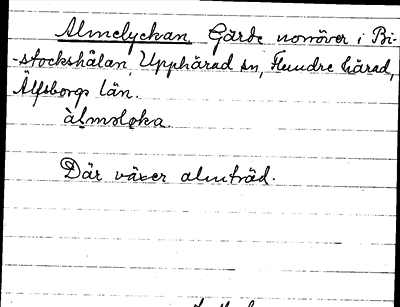 Almelyckan Gärde norröver i Bi-
-stockshålan, Upphärad sn, Flundre härad,
Älfsborgs län.
àlmslọka.
Där växer almträd.